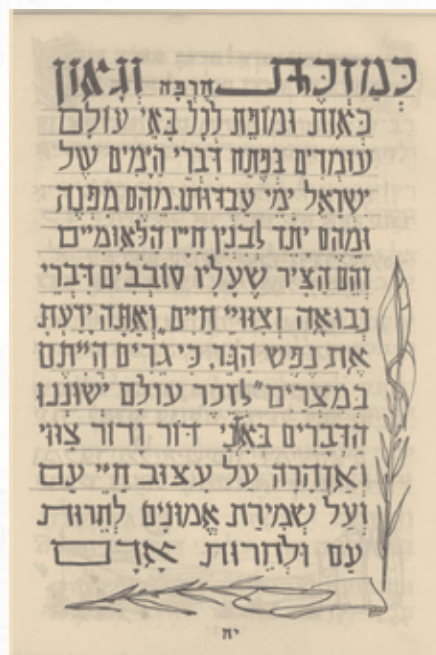 כְּמַזְכֶּרֶת חֻרְבָּה וְגָאוֹן
כְּאוֹת וּמוֹפֵת לְכָל בָּאֵי עוֹלָם
עוֹמְדִים בְּפֶתַח דִּבְרֵי הַיָּמִים שֶׁל
יִשְׂרָאֵל יְמֵי עַבְדוּתוֹ. מֵהֶם מִפְנֶה
וּמֵהֶם יָתֵד לְבִנְיַן חַיָּיו הַלְאוּמִיִּים
וְהֵם הַצִּיר שֶׁעָלָיו סוֹבְבִים דִּבְרֵי
נְבוּאָה וְצִוּוּיֵי חַיִּים "וְאַתֶּם יְדַעְתֶּם
אֶת נֶפֶשׁ הַגֵּר, כִּי גֵרִים הֱיִיתֶם
בְּמִצְרַיִם" לְזֵכֶר עוֹלָם יְשׁוּנְנוּ
הַדְּבָרִים בְּאָזְנֵי דּוֹר וָדוֹר צִוּוּי
וְאַזְהָרָה עַל עִצּוּב חַיֵּי עַם
וְעַל שְׁמִירַת אֱמוּנִים לְחֵרוּת
עַם וּלְחֵרוּת אָדָם
יח